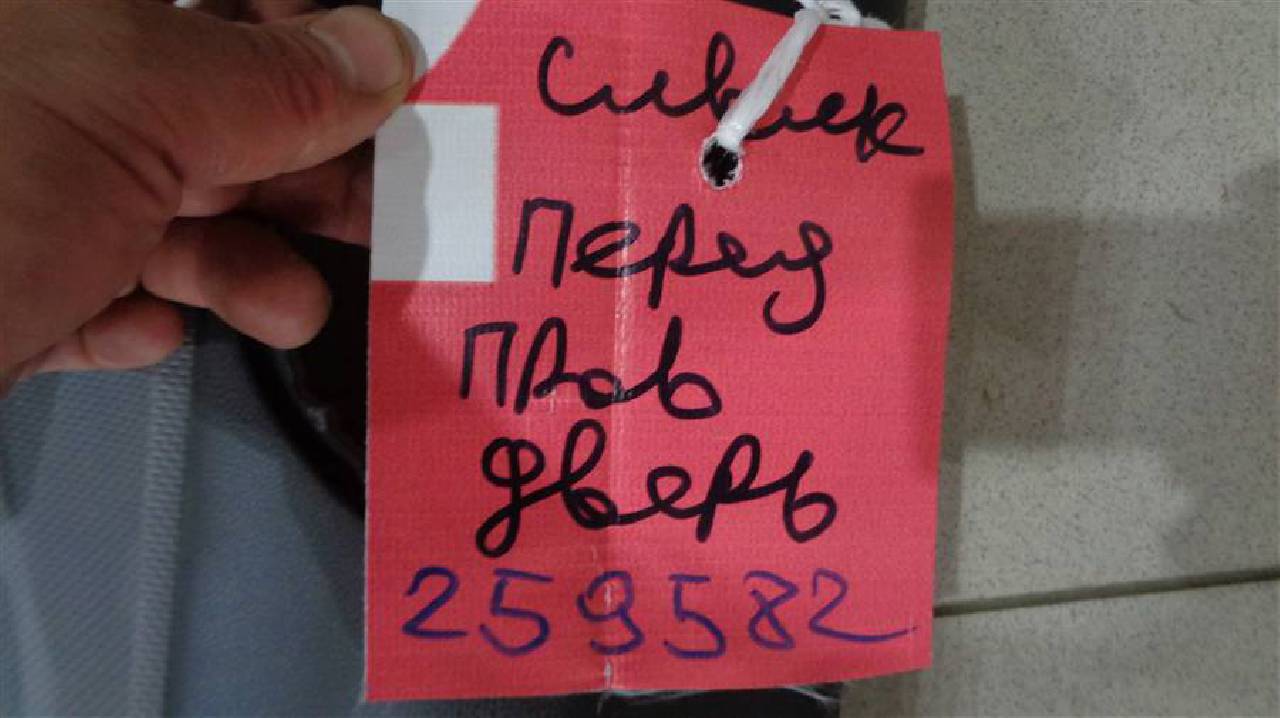 Сивик
Перед
прав
дверь
259582